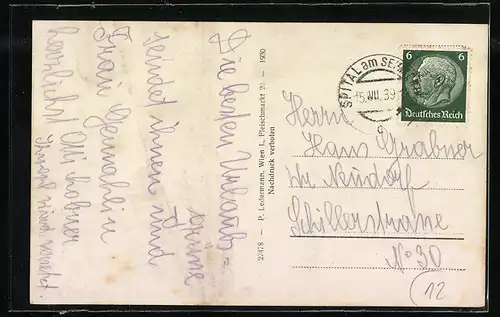 Die besten Urlaub=
grüße
sendet Ihnen und
Frau Gemahlin
herzlichst Olli
27478 — P. Ledermann, Wien I., Fleischmarkt 20 — 1930
Nachdruck verboten
SPITAL am SEM
15.VII.39
6 6
Deutsches Reich
Herrn
Hans Grabner
Wr Neudorf
Schillerstrasse
No 30
12